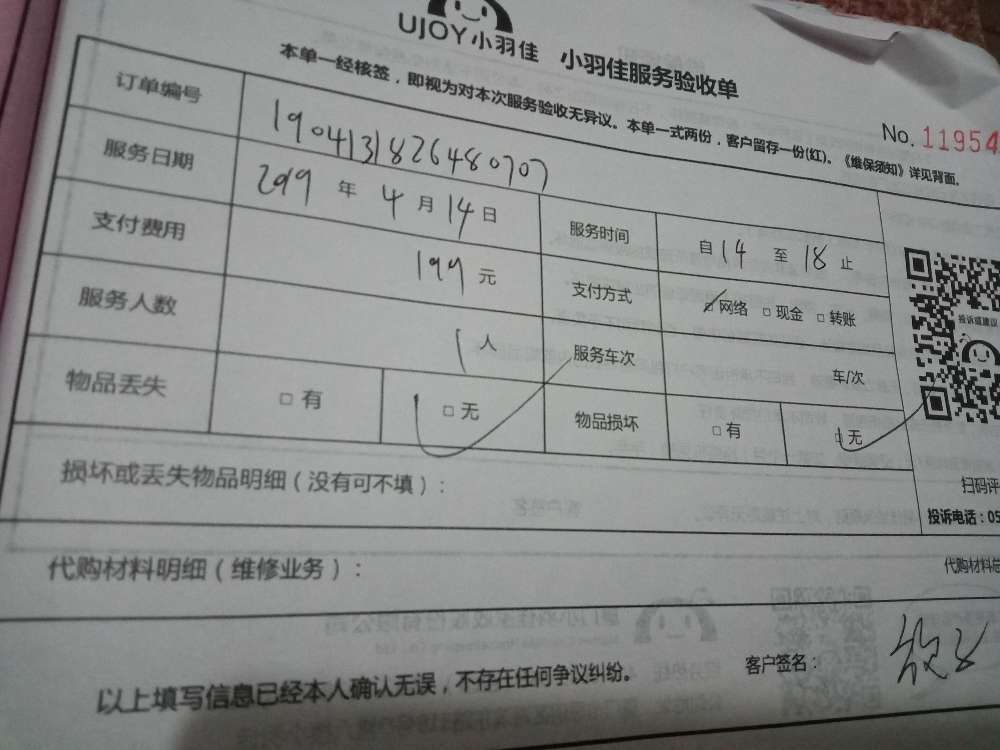 UJOY小羽佳 小羽佳服务验收单
本单一经核签，即视为对本次服务验收无异议。本单一式两份，客户留存一份(红)。《维保须知》详见背面。
No. 11954
订单编号 190413182648070​7
服务日期 2019 年 4 月 14 日 服务时间 自 14 至 18 止
支付费用 199 元 支付方式 □网络 □现金 □转账
服务人数 1 人 服务车次 车/次
物品丢失 □ 有 □ 无 物品损坏 □有 □无
投诉或建议
扫码评
投诉电话：05
损坏或丢失物品明细（没有可不填）：
代购材料明细（维修业务）： 代购材料总
以上填写信息已经本人确认无误，不存在任何争议纠纷。 客户签名：